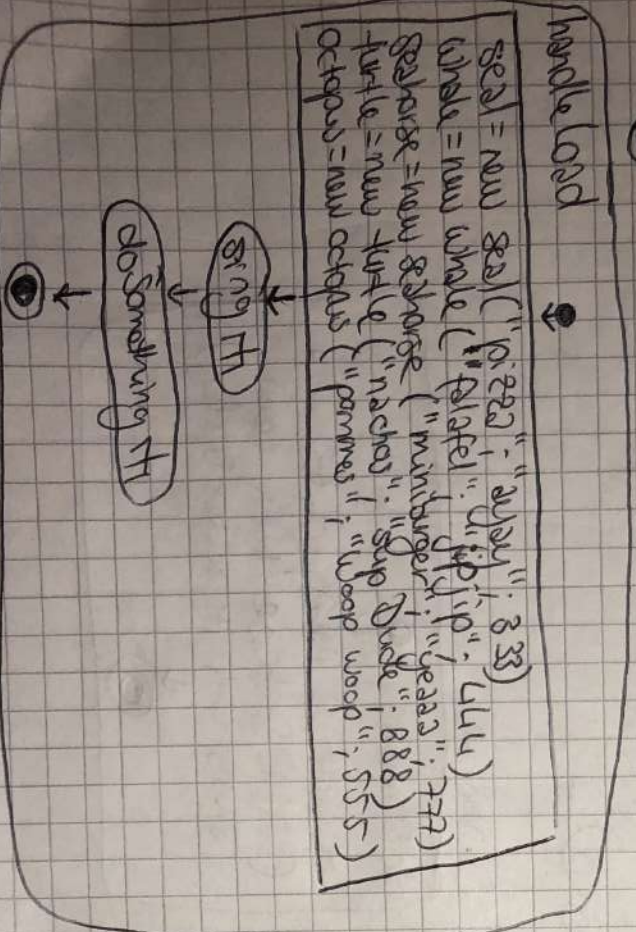 handleload
seal = new seal ("pizza", "ayay", 333)
whale = new whale ("falafel", "jipjip", 444)
seahorse = new seahorse ("miniburger", "yezzz", 777)
turtle = new turtle ("nachos", "sup Dude", 888)
octopus = new octopus ("pommes", "woop woop", 555)
sing
doSomething